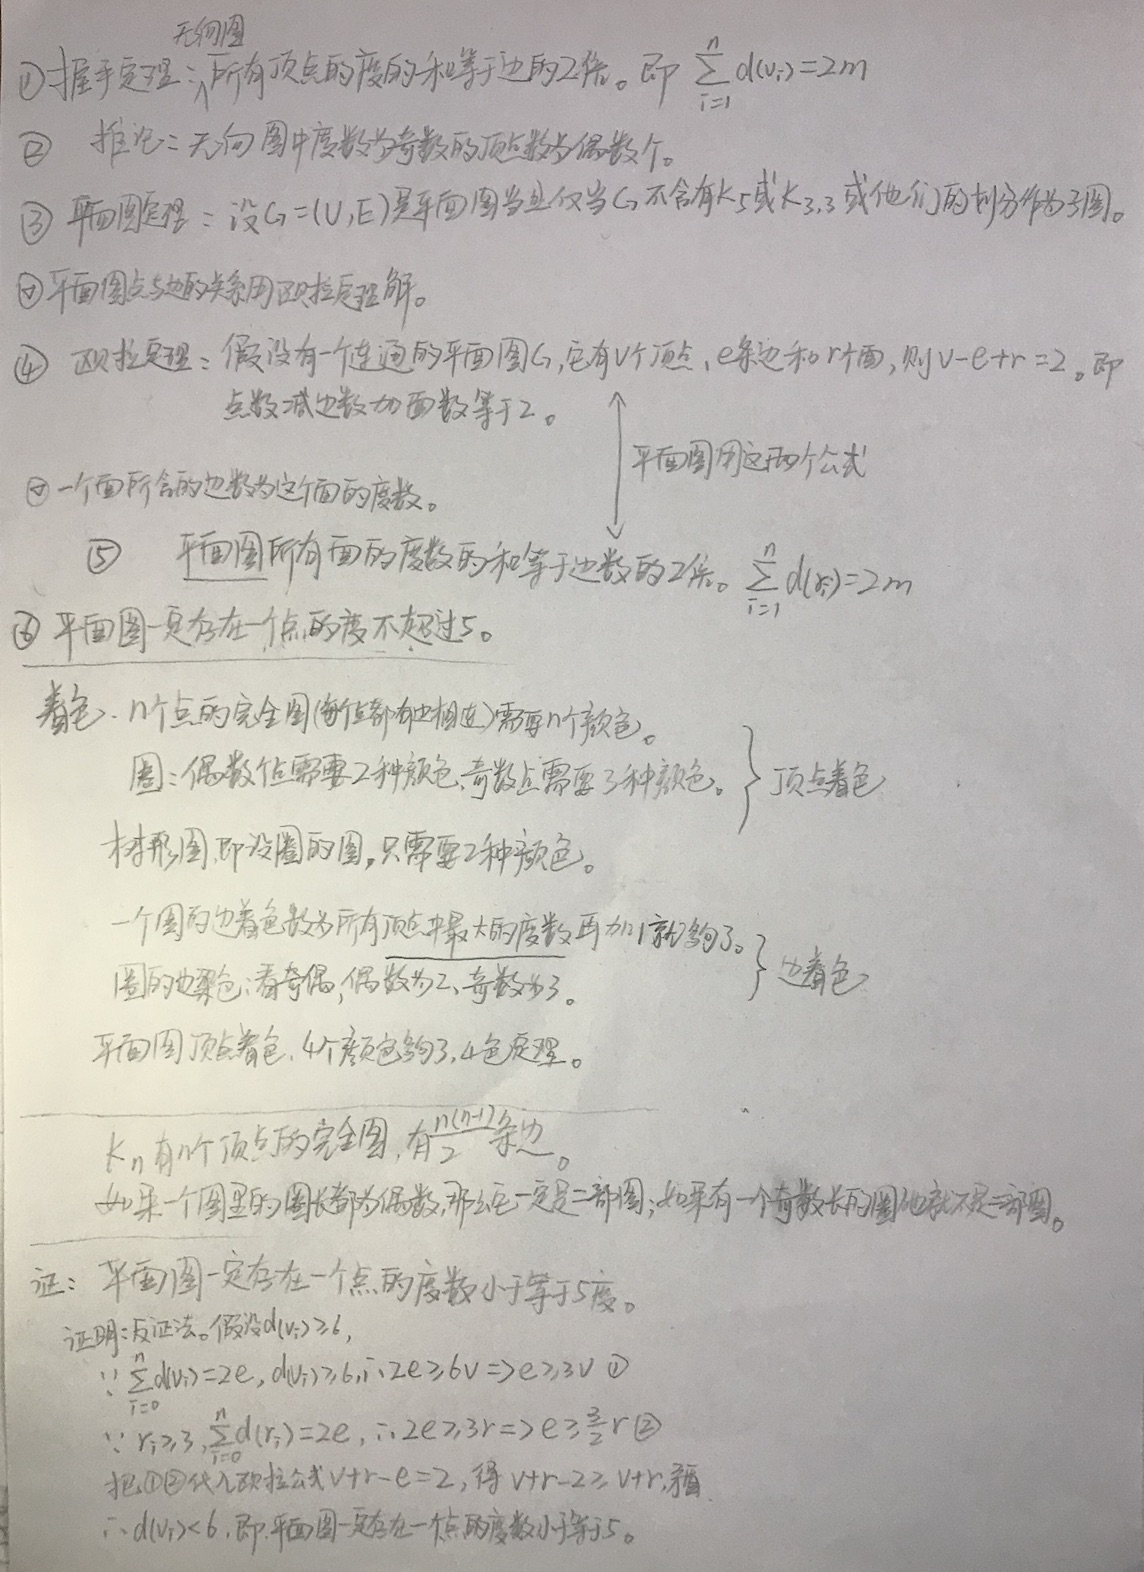 无向图
①握手定理:∧所有顶点的度的和等于边的2倍。即 \sum_{i=1}^{n} d(v_i)=2m
② 推论:无向图中度数为奇数的顶点数为偶数个。
③ 平面图定理:设G=(V,E)是平面图当且仅当G不含有K_5或K_{3,3}或他们的划分作为子图。
平面图点与边的关系用欧拉定理解。
④ 欧拉定理:假设有一个连通的平面图G,它有v个顶点,e条边和r个面,则v-e+r=2。即
点数减边数加面数等于2。
平面图用这两个公式
一个面所含的边数为这个面的度数。
⑤ 平面图所有面的度数的和等于边数的2倍。\sum_{i=1}^{n} d(r_i)=2m
⑥平面图一定存在一个点的度不超过5。
着色.n个点的完全图(每个点都有边相连)需要n个颜色。
圈:偶数个点需要2种颜色,奇数点需要3种颜色。} 顶点着色
树形图,即没圈的图,只需要2种颜色。
一个图的边着色数为所有顶点中最大的度数再加1就够了。
圈的边染色:看奇偶,偶数为2、奇数为3。} 边着色
平面图顶点着色,4个颜色够了,4色定理。
K_n有n个顶点的完全图,有\frac{n(n-1)}{2}条边。
如果一个图里的圈长都为偶数,那么它一定是二部图;如果有一个奇数长的圈他就不是二部图。
证:平面图一定存在一个点的度数小于等于5度。
证明:反证法。假设d(v_i)≥6,
∵\sum_{i=0}^{n} d(v_i)=2e,d(v_i)≥6,∴2e≥6v=>e≥3v ①
∵r_i≥3,\sum_{i=0}^{n} d(r_i)=2e,∴2e≥3r=>e≥\frac{3}{2}r②
把①②代入欧拉公式v+r-e=2,得v+r-2≥v+r,矛盾
∴d(v_i)<6,即平面图一定存在一个点的度数小于等于5。